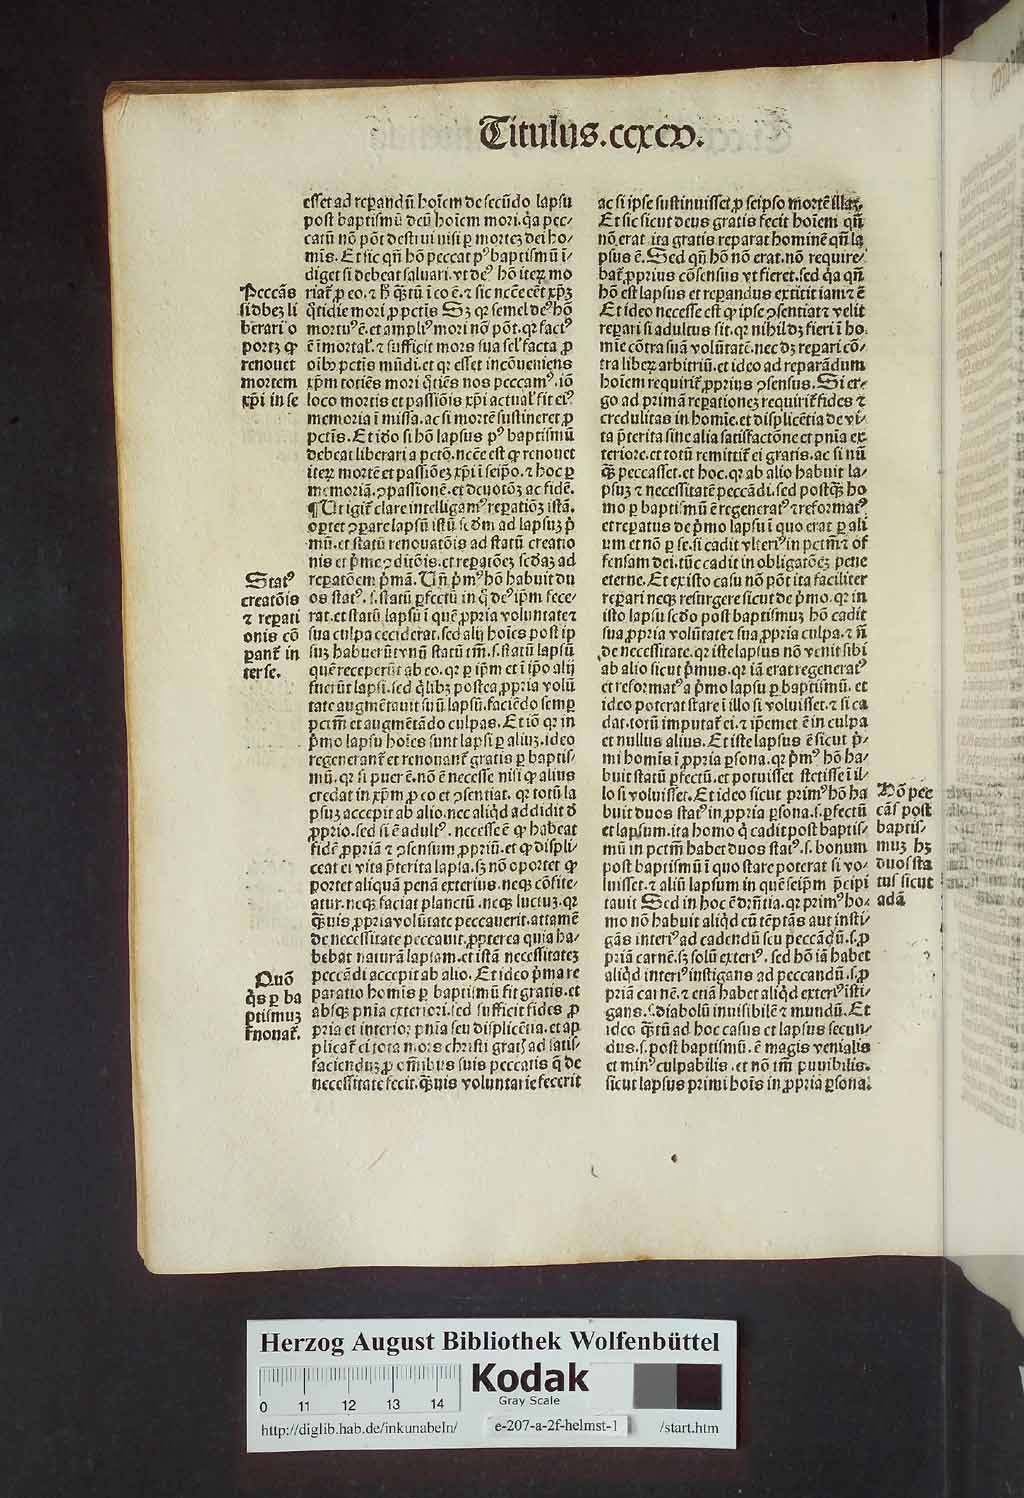 Titulus.ccxcv.
esset ad reparandū hoīem de secūdo lapsu
post baptismū deū hoīem mori. q̇a pec⸗
catū nō pōt destrui nisi ꝑ mortez dei ho⸗
mis. Et sic qn̄ hō peccat pꝰ baptismū ī⸗
diget si debeat saluari. vt deꝰ hō iteꝝ mo
riat̄ ꝓ eo. ⁊ h̄ q̄ꝫtū ī eo ē. ⁊ sic nc̄ce eēt xp̄ꝫ
q̇tidie mori ꝓ pctīs Sꝫ qꝛ semel deꝰ hō
mortuꝰ ē. et ampliꝰ mori nō pōt. qꝛ facꝰ
ē īmortal'. ⁊ sufficit mors sua sel' facta ꝓ
oībꝰ pctīs mūdi. et qꝛ esset incōueniens
xp̄m toties mori q̇ties nos peccamꝰ. iō
loco mortis et passiōis xp̄i actual' fit eiꝰ
memoria ī missa. ac si mortē sustineret ꝓ
pctīs. Et ido si hō lapsus pꝰ baptismū
debeat liberari a pctō. nc̄ce est ꝙ renouet
iteꝝ mortē et passiōeꝫ xp̄i ī seip̄o. ⁊ hoc ꝑ
memoriā. ꝯpassionē. et deuotōꝫ ac fidē.
¶ Ut igit̄ clare intelligamꝰ reꝑatiōꝫ istā.
oꝑtet ꝯꝑare lapsū istū scd̄m ad lapsuꝫ p̄
mū. et statū renouatōis ad statū creatio
nis et p̄me ꝯditōis. et reꝑatōeꝫ scd̄aꝫ ad
reꝑatōem p̄mā. Un̄ p̄mꝰ hō habuit du
os statꝰ. s. statū ꝑfectū in q̇ deꝰ ip̄m fece⸗
rat. et statū lapsū ī quē ꝓpria voluntate ⁊
sua culpa ceciderat. sed alij hoīes post ip
suꝫ habuerūt vnū statū tm̄. s. statū lapsū
quē receperūt ab eo. qꝛ ꝑ ip̄m et ī ip̄o alij
fuerūt lapsi. sed q̇libꝫ postea ꝓpria volū
tate augmētauit suū lapsū. faciēdo semꝑ
pctm̄ et augmētādo culpas. Et iō qꝛ in
p̄mo lapsu hoīes sunt lapsi ꝑ aliuꝫ. ideo
regenerant̄ et renouant̄ gratis ꝑ baptis⸗
mū. qꝛ si puer ē. nō ē necesse nisi ꝙ alius
credat in xp̄m ꝓ eo et ꝯsentiat. qꝛ totū la
psuꝫ accepit ab alio. nec aliq̇d addidit d̄
ꝓprio. sed si ē adultꝰ. necesse ē ꝙ habeat
fidē ꝓpriā ⁊ ꝯsensum ꝓpriū. et ꝙ displi⸗
ceat ei vita p̄terita lapsa. sꝫ nō oportet ꝙ
portet aliquā penā exterius. neqꝫ cōfite⸗
atur. neqꝫ faciat planctū. neqꝫ luctuꝫ. qꝛ
q̄ꝫuis ꝓpria volūtate peccauerit. attamē
de necessitate peccauit. ꝓpterea quia ha⸗
bebat naturā lapsam. et istā necessitateꝫ
peccādi accepit ab alio. Et ideo p̄ma re
paratio homis ꝑ baptismū fit gratis. et
absqꝫ pnīa exteriori. sed sufficit fides ꝓ
pria et interior pnīa seu displicētia. et ap
plicat̄ ei tota mors christi gratꝭ ad satis⸗
faciendū ꝓ om̄ibus suis peccatis q̄ de
necessitate fecit. q̄ꝫuis voluntarie fecerit
Peccās
si dbeꝫ li
berari o
portꝫ ꝙ
renouet
mortem
xp̄i in se
Statꝰ
creatōis
⁊ reꝑati
onis cō
ꝑant̄ in
ter se.
Quō
q̇s ꝑ ba
ptismuꝫ
rnouat̄.
ac si ipse sustinuisset ꝓ seipso mortē illaꝫ.
Et sic sicut deus gratis fecit hoīem qn̄
nō erat. ita gratis reparat hominē qn̄ la
psus ē. Sed qn̄ hō nō erat. nō require⸗
bat̄ ꝓprius cōsensus vt fieret. sed q̇a qn̄
hō est lapsus et reꝑandus extitit iam ⁊ ē
Et ideo necesse est ꝙ ipse ꝯsentiat ⁊ velit
reꝑari si adultus sit. qꝛ nihil dꝫ fieri ī ho⸗
mīe cōtra suā volūtatē. nec dꝫ reꝑari cō⸗
tra liberꝫ arbitriū. et ideo ad reparādum
hoīem requirit̄ ꝓprius ꝯsensus. Si er⸗
go ad primā reꝑationeꝫ requirit̄ fides ⁊
credulitas in homīe. et displicētia de vi⸗
ta p̄terita sine alia satisfactōne et pnīa ex
teriore. et totū remittit̄ ei gratis. ac si nū
q̄ꝫ peccasset. et hoc. qꝛ ab alio habuit la⸗
psuꝫ ⁊ necessitatē peccādi. sed postq̄ꝫ ho
mo ꝑ baptismū ē regeneratꝰ ⁊ reformatꝰ
et reꝑatus de p̄mo lapsu ī quo erat ꝑ ali
um et nō ꝑ se. si cadit vlteriꝰ in pctm̄ ⁊ of
fensam dei. tūc cadit in obligatōeꝫ pene
eterne. Et ex isto casu nō pōt ita faciliter
reꝑari neqꝫ resurgere sicut de p̄mo. qꝛ in
isto lapsu scd̄o post baptismuꝫ hō cadit
sua ꝓpria volūtate ⁊ sua ꝓpria culpa. ⁊ n̄
de necessitate. qꝛ iste lapsus nō venit sibi
ab alio sicut p̄mus. qꝛ iā erat regeneratꝰ
et reformatꝰ a p̄mo lapsu ꝑ baptismū. et
ideo poterat stare ī illo si voluisset. ⁊ si ca
dat. totū imputat̄ ei. ⁊ ip̄emet ē in culpa
et nullus alius. Et iste lapsus ē sicut p̄⸗
mi homis ī ꝓpria ꝑsona. qꝛ p̄mꝰ hō ha⸗
buit statū ꝑfectū. et potuisset stetisse ī il⸗
lo si voluisset. Et ideo sicut primꝰ hō ha
buit duos statꝰ in ꝓpria ꝑsona. s. ꝑfectū
et lapsum. ita homo q̇ cadit post baptis⸗
mū in pctm̄ habet duos statꝰ. s. bonum
post baptismū ī quo stare poterat si vo⸗
luisset. ⁊ aliū lapsum in quē seip̄m p̄cipi
tauit Sed in hoc ē dr̄ntia. qꝛ primꝰ ho⸗
mo nō habuit aliq̇d eū tēptās aut insti⸗
gās interiꝰ ad cadendū seu peccādū. s. ꝓ
priā carnē. sꝫ solū exteriꝰ. sed hō iā habet
aliq̇d interiꝰ instigans ad peccandū. s. ꝓ
priā carnē. ⁊ etiā habet aliq̇d exteriꝰ īsti⸗
gans. s. diabolū inuisibilē ⁊ mundū. Et
ideo q̄ꝫtū ad hoc casus et lapsus secun⸗
dus. s. post baptismū. ē magis venialis
et minꝰ culpabilis. et nō tm̄ punibilis.
sicut lapsus primi hoīs in ꝓpria ꝑsona.
Hō pec
cās post
baptis⸗
muꝫ hꝫ
duos sta
tus sicut
adā
Herzog August Bibliothek Wolfenbüttel
0 11 12 13 14
Kodak
Gray Scale
http://diglib.hab.de/inkunabeln/ e-207-a-2f-helmst-1 /start.htm